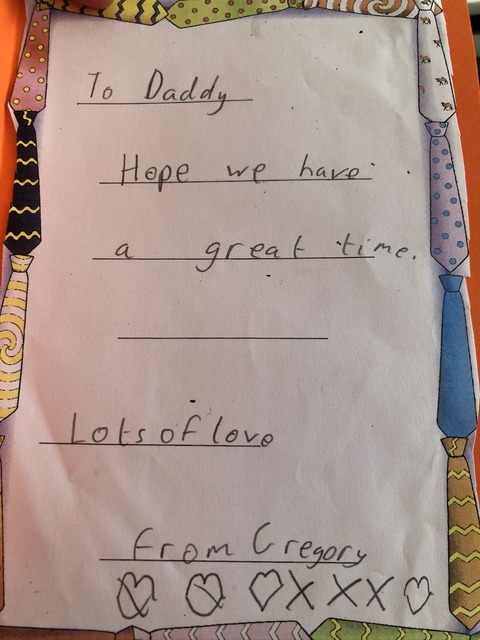 To Daddy
Hope we have
a great time.
Lots of love
from Gregory
XXX